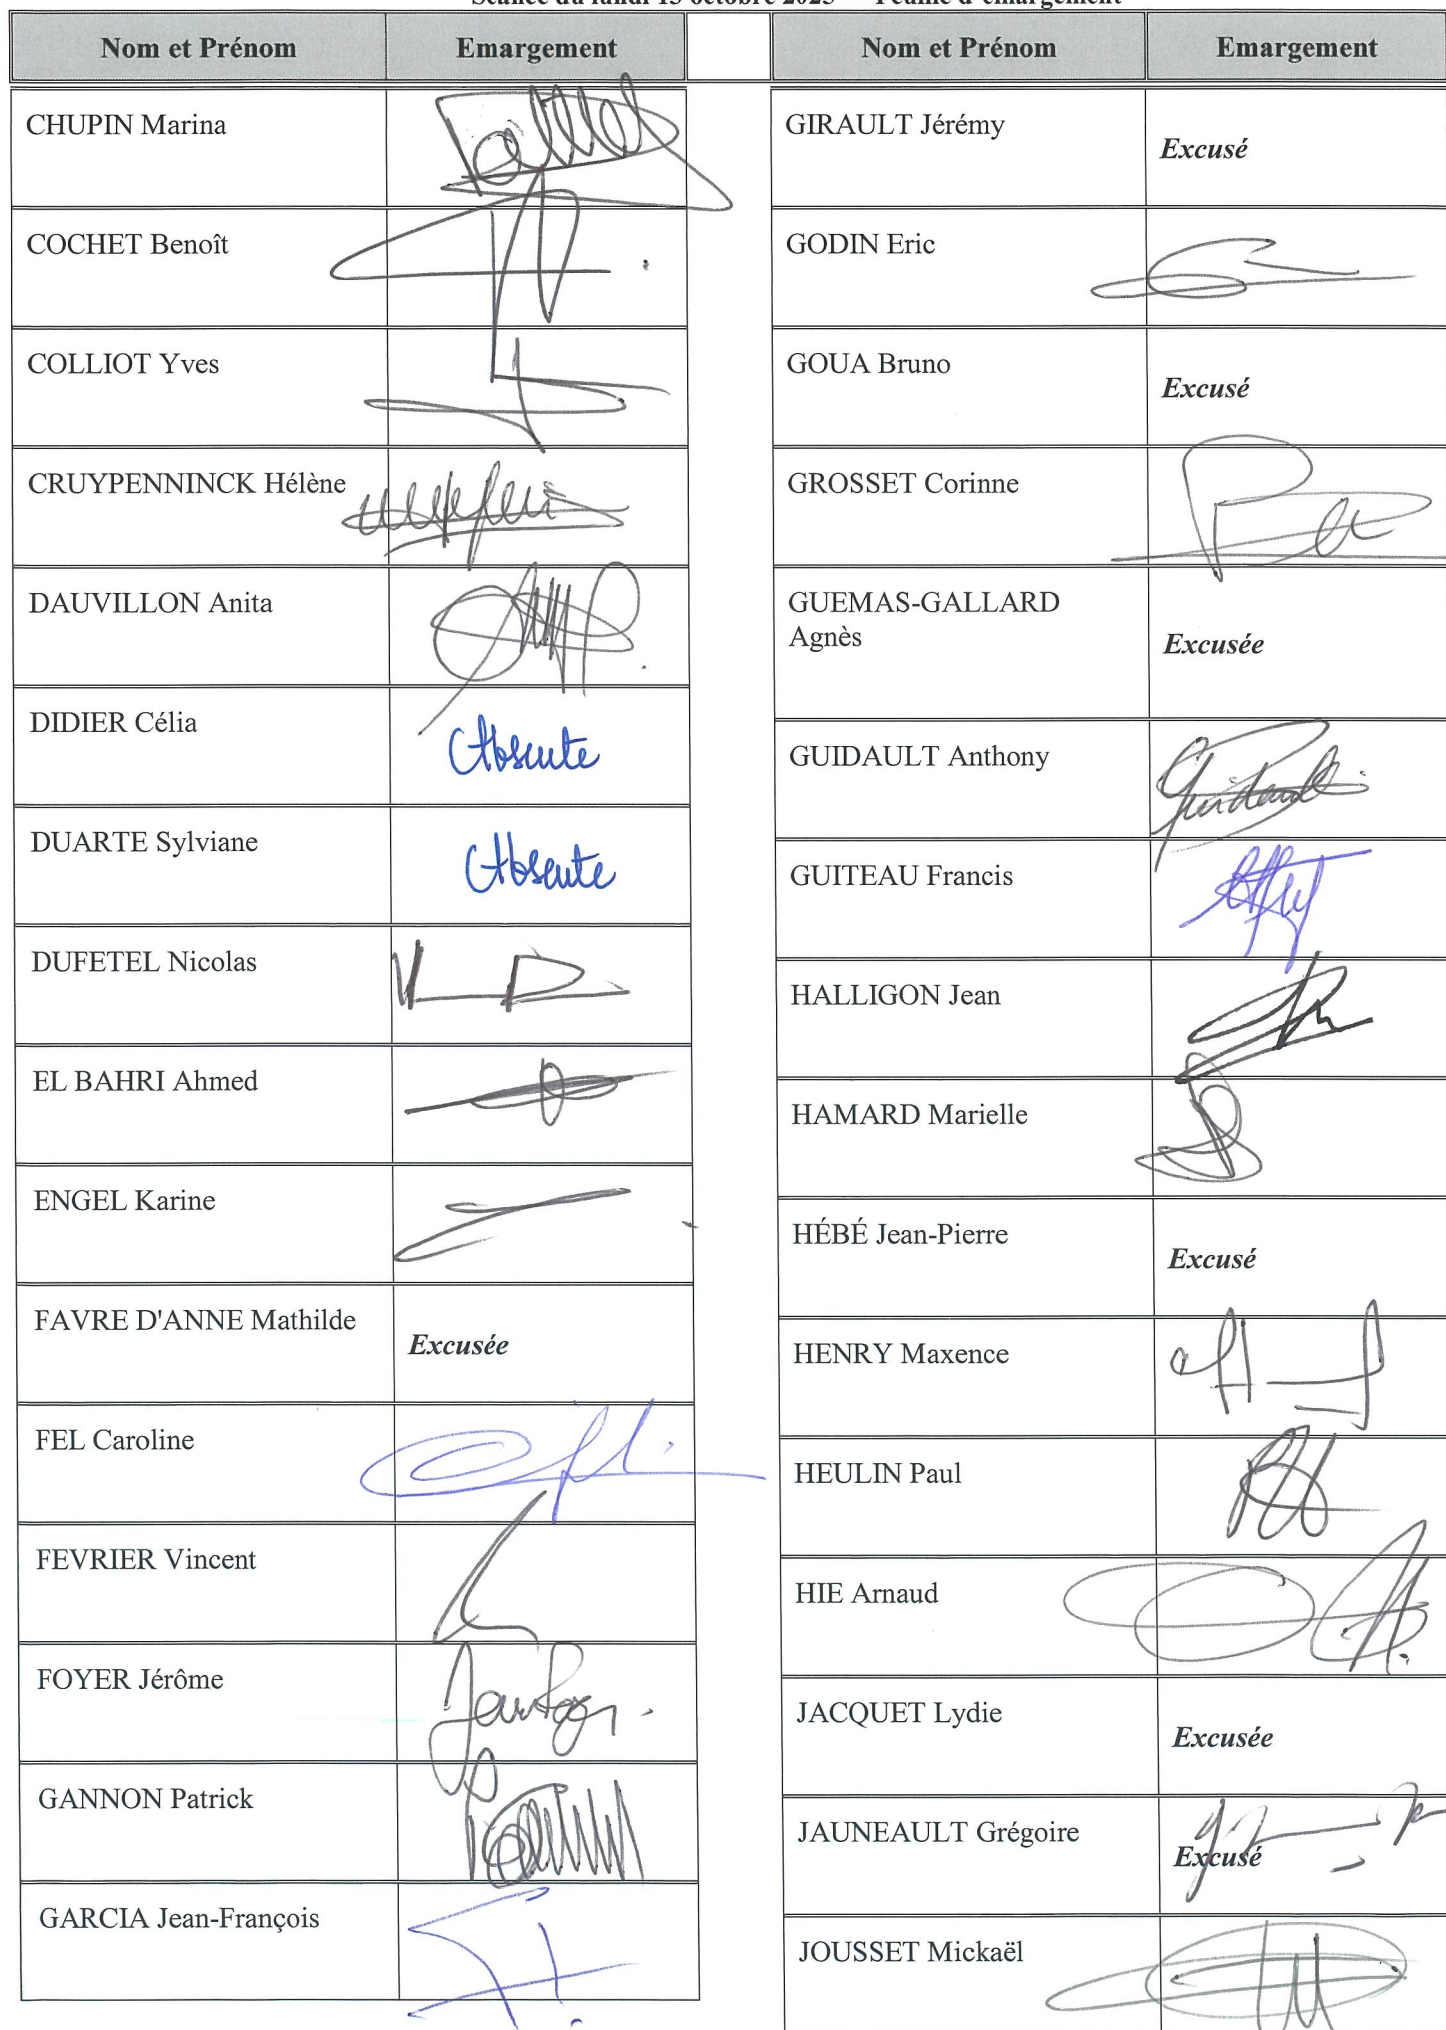 Séance du lundi 13 octobre 2025 Feuille d'émargement
Nom et Prénom Emargement
CHUPIN Marina
COCHET Benoît
COLLIOT Yves
CRUYPENNINCK Hélène
DAUVILLON Anita
DIDIER Célia Absente
DUARTE Sylviane Absente
DUFETEL Nicolas
EL BAHRI Ahmed
ENGEL Karine
FAVRE D'ANNE Mathilde Excusée
FEL Caroline
FEVRIER Vincent
FOYER Jérôme
GANNON Patrick
GARCIA Jean-François
Nom et Prénom Emargement
GIRAULT Jérémy Excusé
GODIN Eric
GOUA Bruno Excusé
GROSSET Corinne
GUEMAS-GALLARD
Agnès Excusée
GUIDAULT Anthony Guidault
GUITEAU Francis
HALLIGON Jean
HAMARD Marielle
HÉBÉ Jean-Pierre Excusé
HENRY Maxence
HEULIN Paul
HIE Arnaud
JACQUET Lydie Excusée
JAUNEAULT Grégoire Excusé
JOUSSET Mickaël